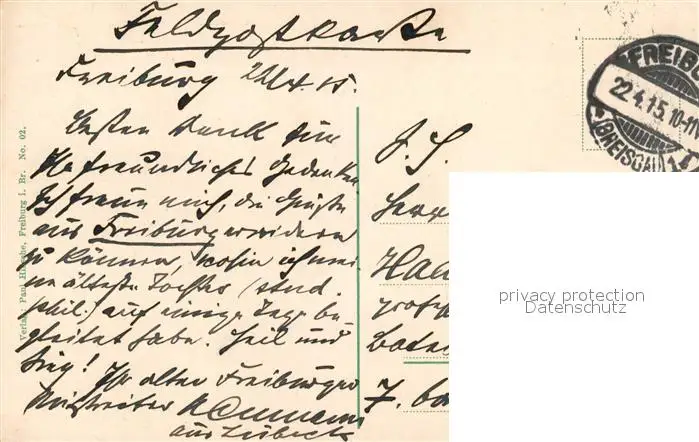 Feldpostkarte
Freiburg 22.4.15.
Besten Dank für
Ihr freundliches Gedenken
Ich freue mich, die Grüße
aus Freiburg erwidern
zu können, wohin ich mei-
ne älteste Tochter (stud.
phil.) auf einige Tage be-
gleitet habe. Heil und
Sieg! Ihr alter Freiburger
Mitstreiter
aus Lübeck
Verlag: Paul Freiburg i. Br. No. 02.
FREIB
22.4.15.10-11
(BREISGAU) 1
Herr
7.
privacy protection
Datenschutz